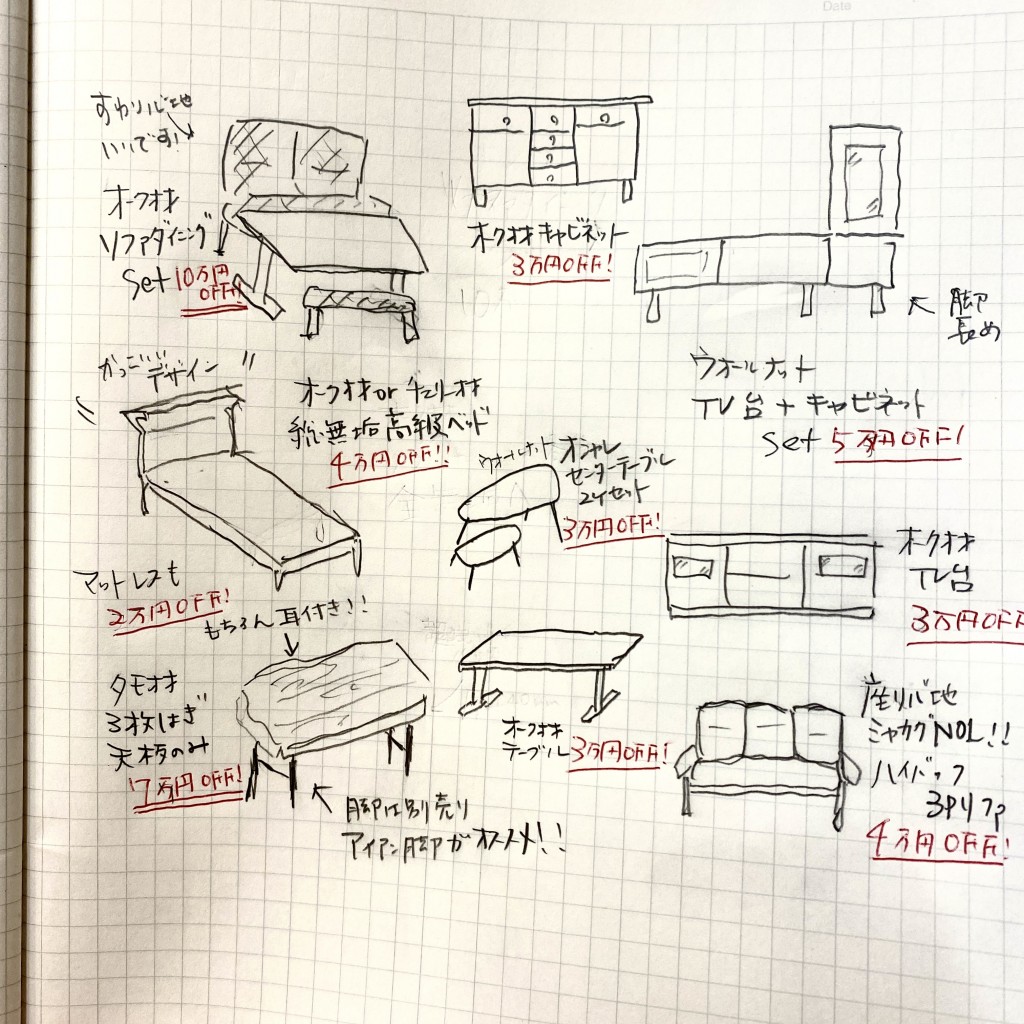 Date
すわり心地
いいです!
オーク材
ソファダイニング
Set 10万円
OFF!
オーク材キャビネット
3万円OFF!
脚
長め
ウォールナット
TV台+キャビネット
Set 5万円OFF!
かっこいい
デザイン
オーク材orチェリー材
総無垢高級ベッド
4万円OFF!!
マットレスも
2万円OFF!
ウォールナット
オシャレ
センターテーブル
2イセット
3万円OFF!
オーク材
TV台
3万円OFF
もちろん耳付き!!
タモ材
3枚はぎ
天板のみ
7万円OFF!
脚は別売り
アイアン脚がオススメ!!
オーク材
テーブル
3万円OFF!
座り心地
ミヤカグNO1!!
ハイバック
3Pソファ
4万円OFF!